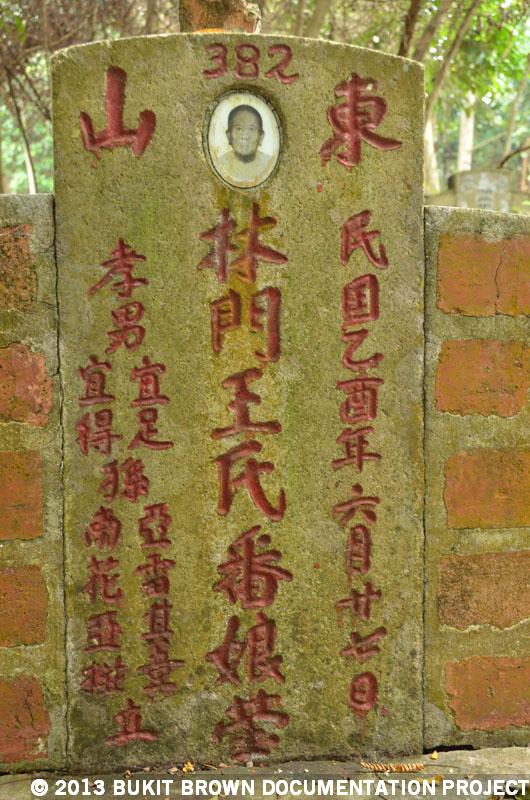 382
東
山
民国乙酉年六月廿七日
林門王氏番娘塋
孝男
宜足
宜得
孫
亞雷其章
南花亞
立
© 2013 BUKIT BROWN DOCUMENTATION PROJECT